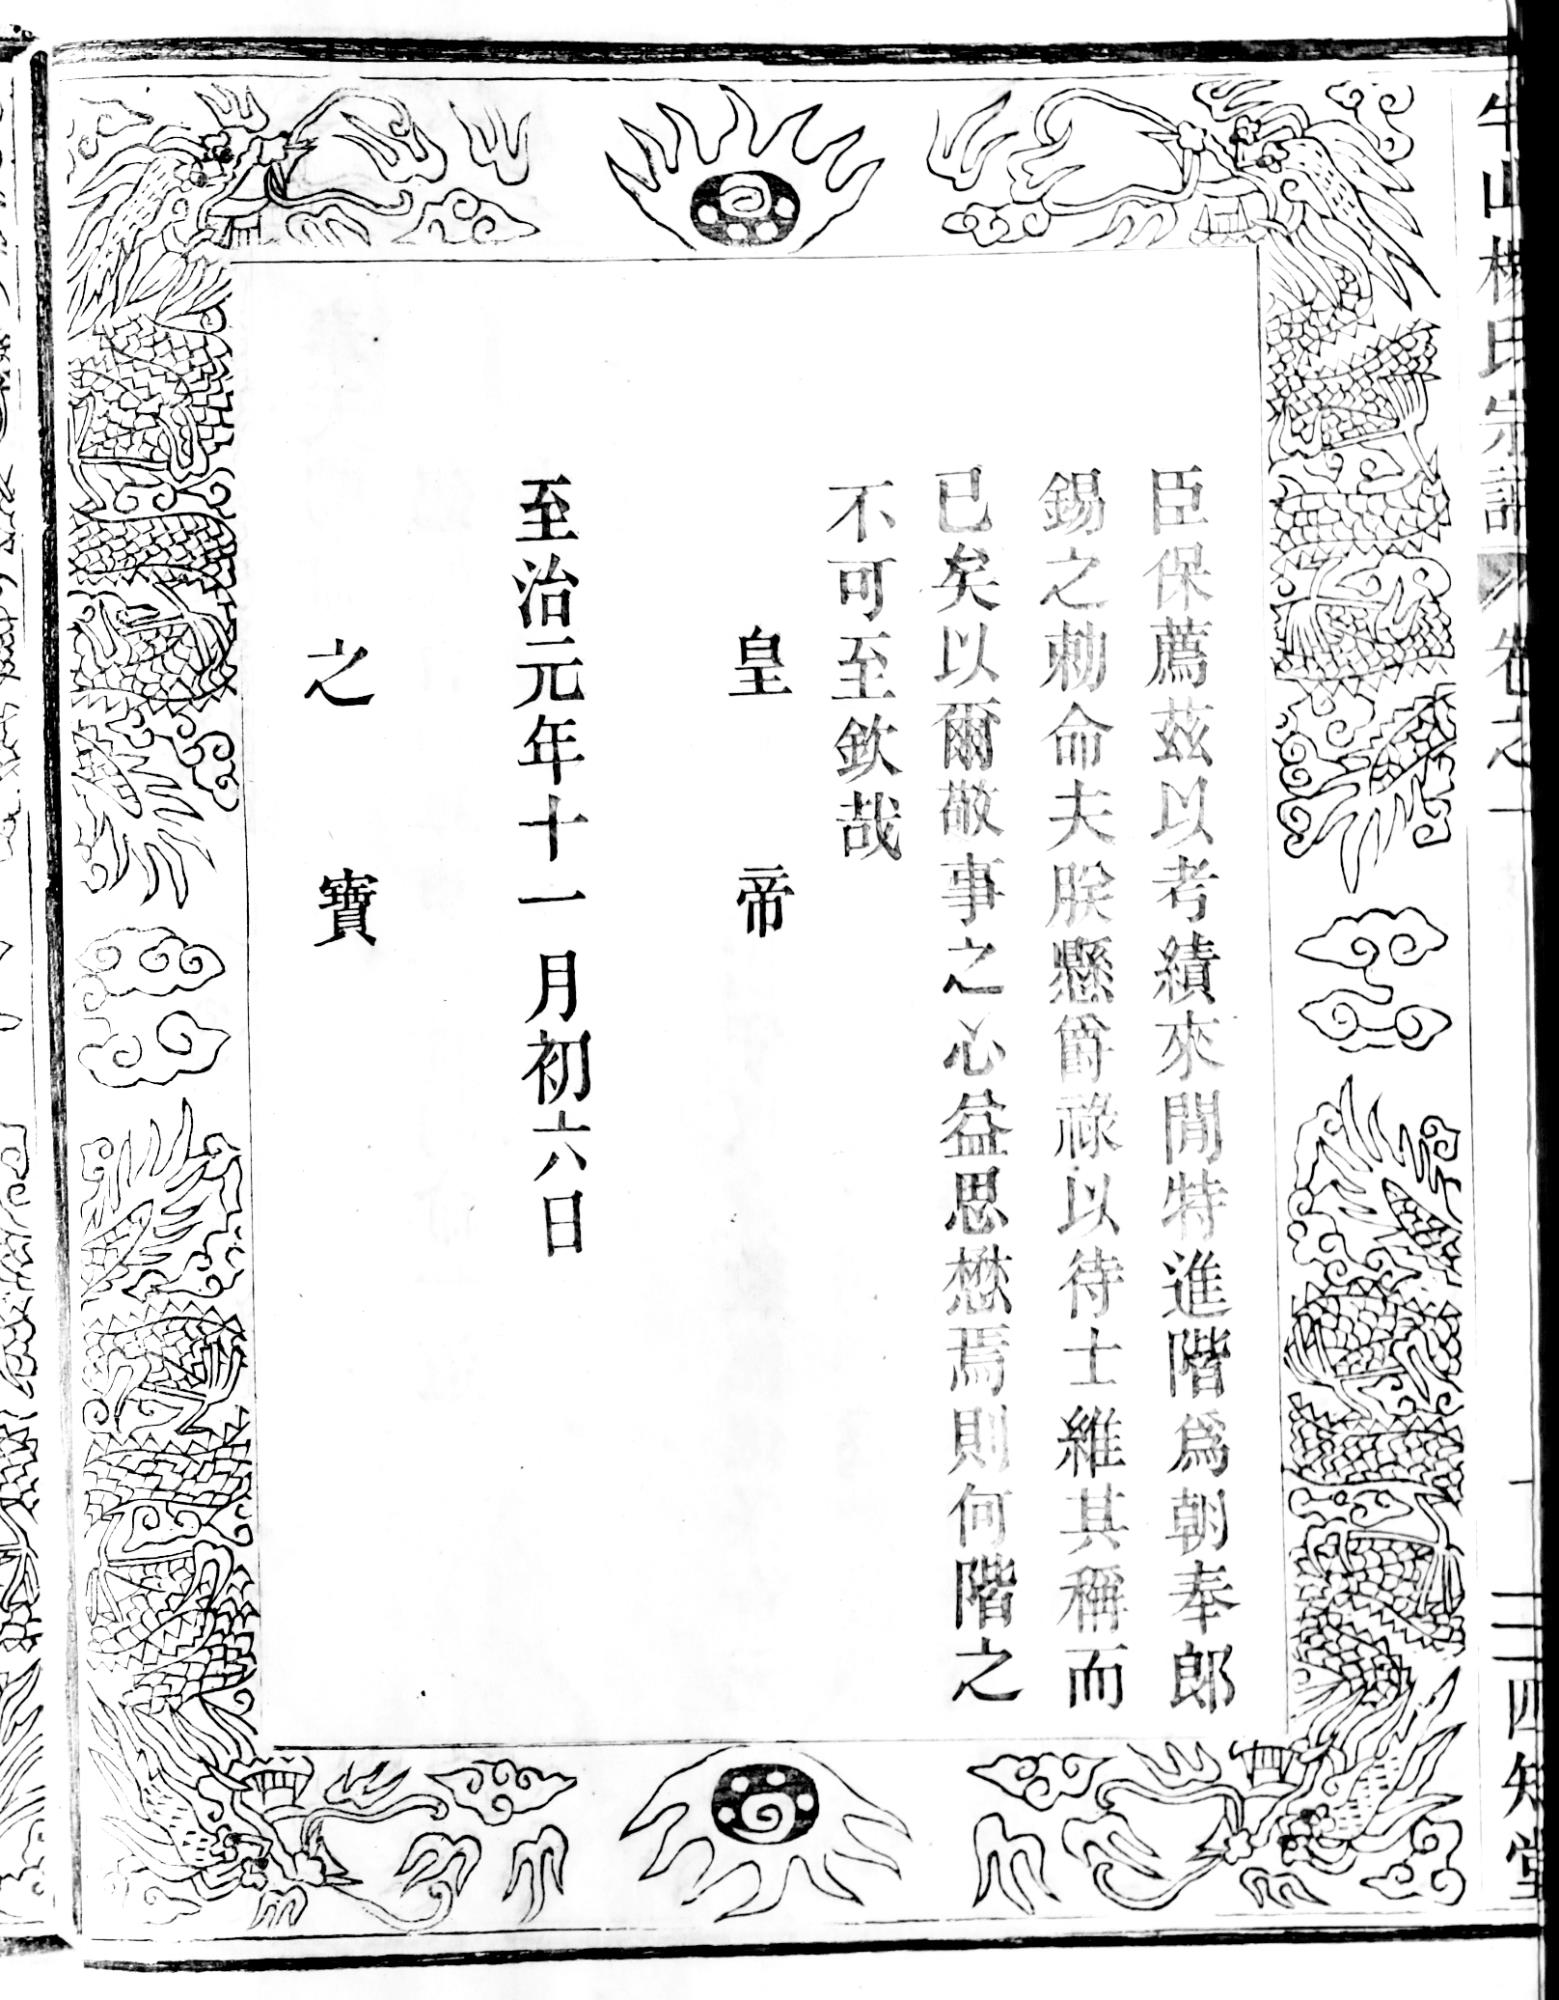 牛山楊氏宗譜 卷之一 十三 四知堂
臣保薦茲以考績來聞特進階爲朝奉郎
錫之勅命夫朕懸爵祿以待士維其稱而
已矣以爾敬事之心益思懋焉則何階之
不可至欽哉
皇帝
至治元年十一月初六日
之寶